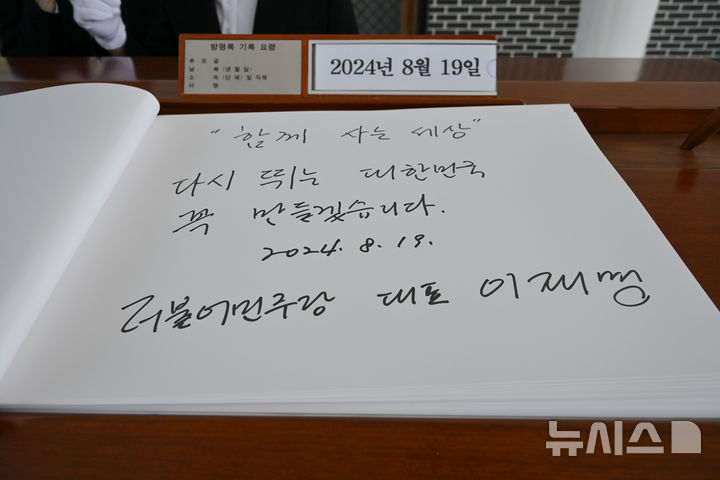 방명록 기록 요령
추 모 글
날 짜 (년 월 일)
소 속 (단 체) 및 직책
서 명
2024년 8월 19일
"함께 사는 세상"
다시 뛰는 대한민국
꼭 만들겠습니다.
2024. 8. 19.
더불어민주당 대표 이재명
뉴시스